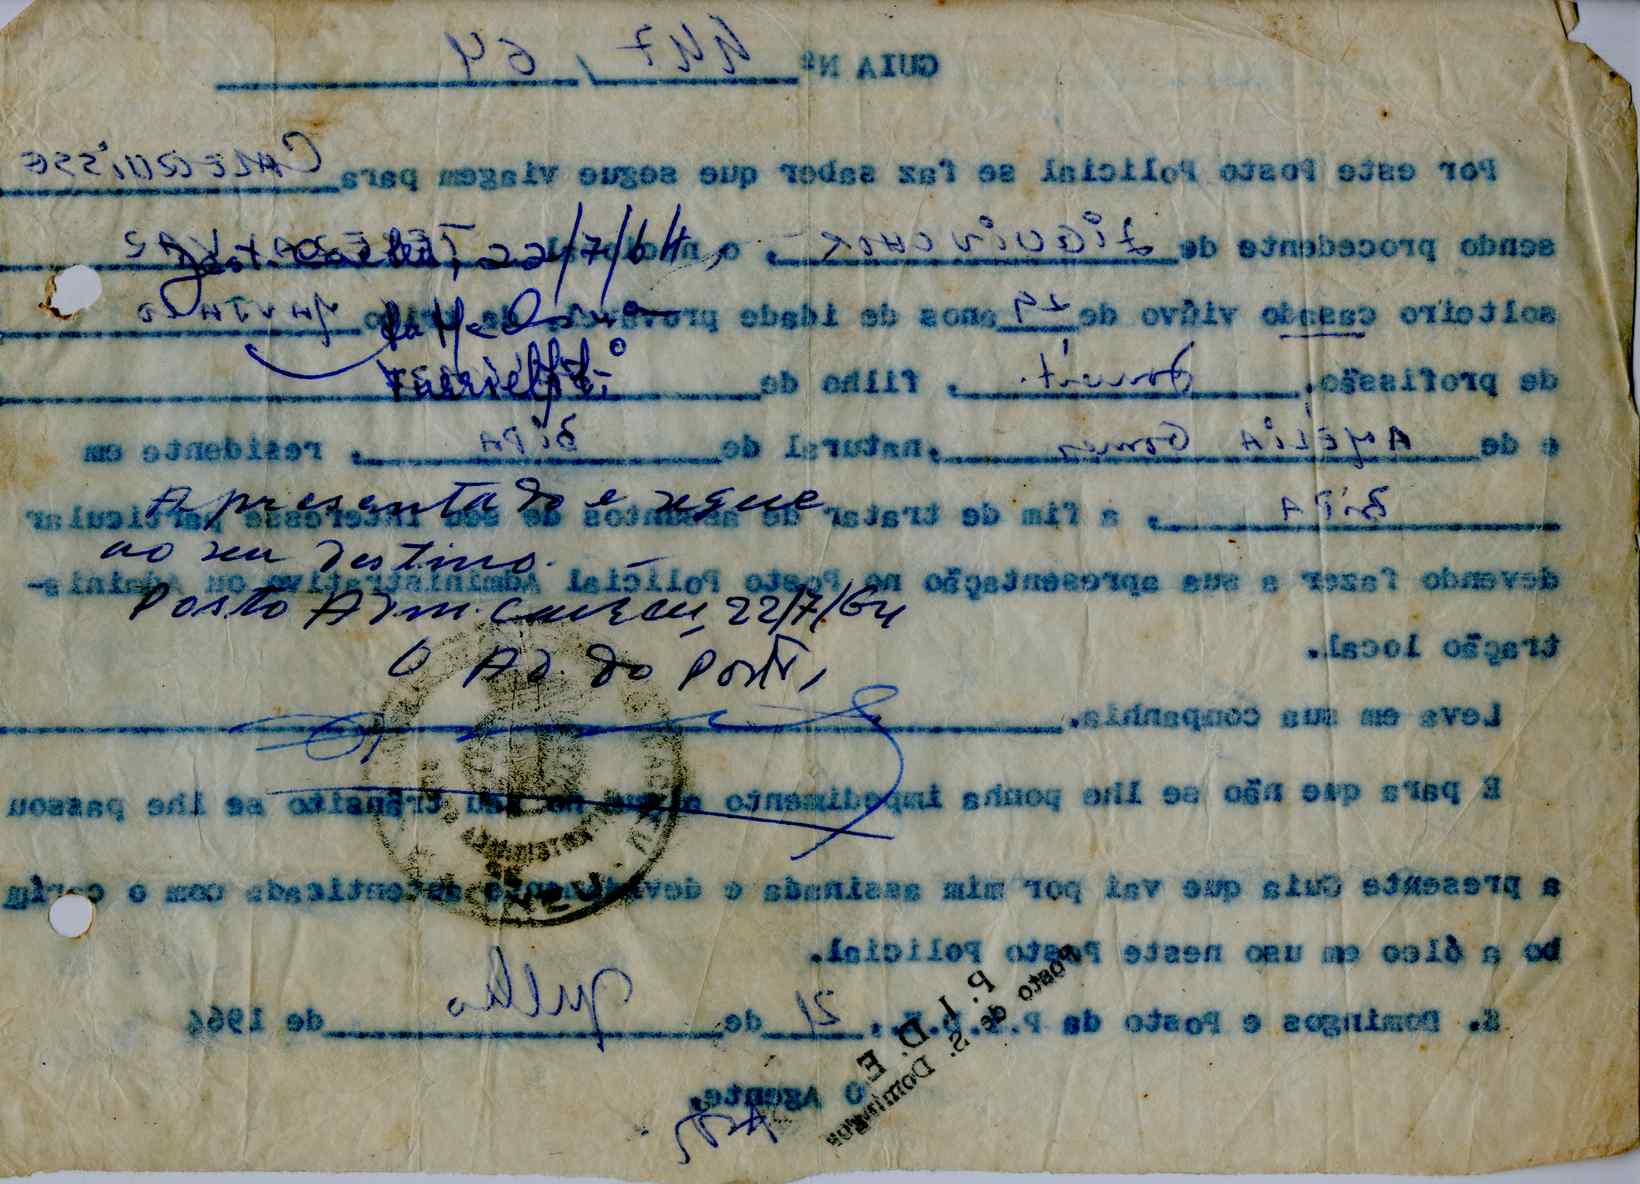 GUIA Nº 447 / 64
Por este Posto Policial se faz saber que segue viagem para CALEQUISSE
sendo procedente de ZIGUINCHOR, o
22/7/64,
solteiro casado viúvo de 29 anos de idade
de profissão, filho de
e de AMÉLIA Gomes, natural de BIPA, residente em
BIPA, a fim de tratar de assuntos de seu interesse particular
Apresentado e segue
ao seu destino. —
devendo fazer a sua apresentação no Posto Policial Administrativo ou Adminis-
Posto Adm. 22/7/64
tração local.
O Ad. do Posto,
Leva em sua companhia.
E para que não se lhe ponha impedimento algum no seu trânsito se lhe passou
a presente Guia que vai por mim assinada e devidamente autenticada com o carím
bo a óleo em uso neste Posto Policial.
S. Domingos e Posto da P.I.D.E., 21 de Julho de 1964
P. I. D. E
Posto de S. Domingos
O Agente,